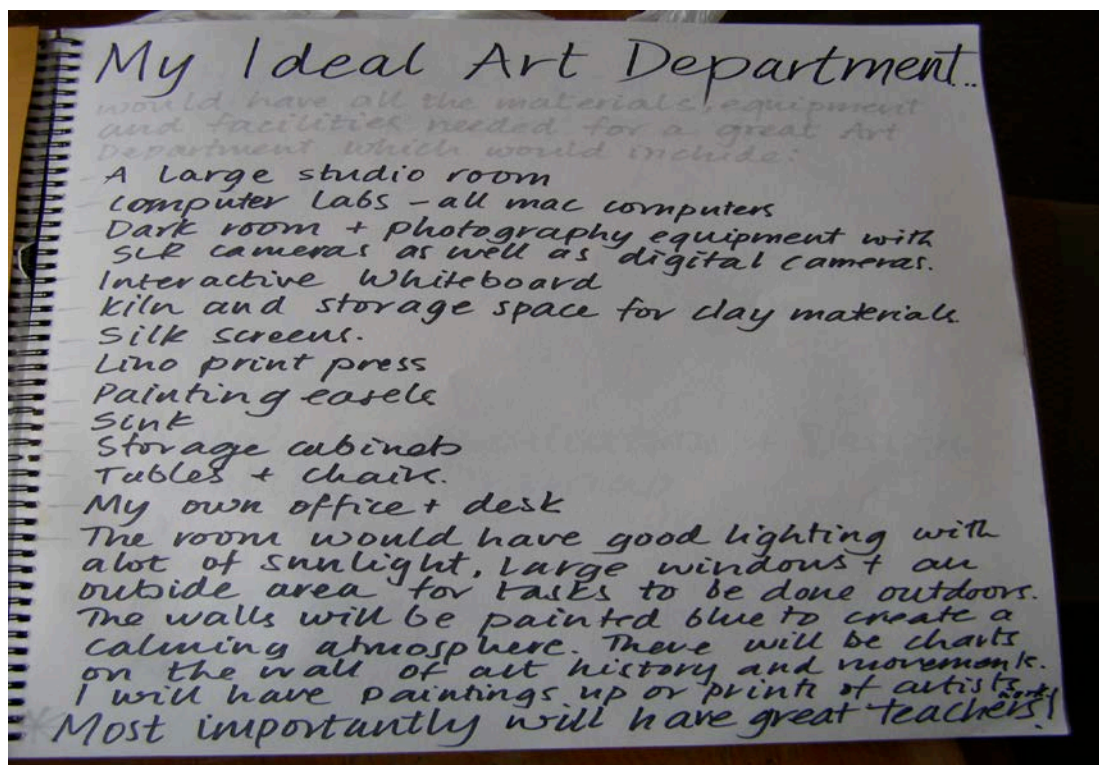 My Ideal Art Department...
would have all the materials, equipment
and facilities needed for a great Art
Department which would include:
A large studio room
computer Labs - all mac computers
Dark room + photography equipment with
SLR cameras as well as digital cameras.
Interactive Whiteboard
kiln and storage space for clay materials.
Silk screens.
Lino print press
Painting easels
Sink
Storage cabinets
Tables + chairs.
My own office + desk
The room would have good lighting with
alot of sunlight, large windows + an
outside area for tasks to be done outdoors.
The walls will be painted blue to create a
calming atmosphere. There will be charts
on the wall of art history and movements.
I will have paintings up or prints of artists works!
* Most importantly will have great teachers!